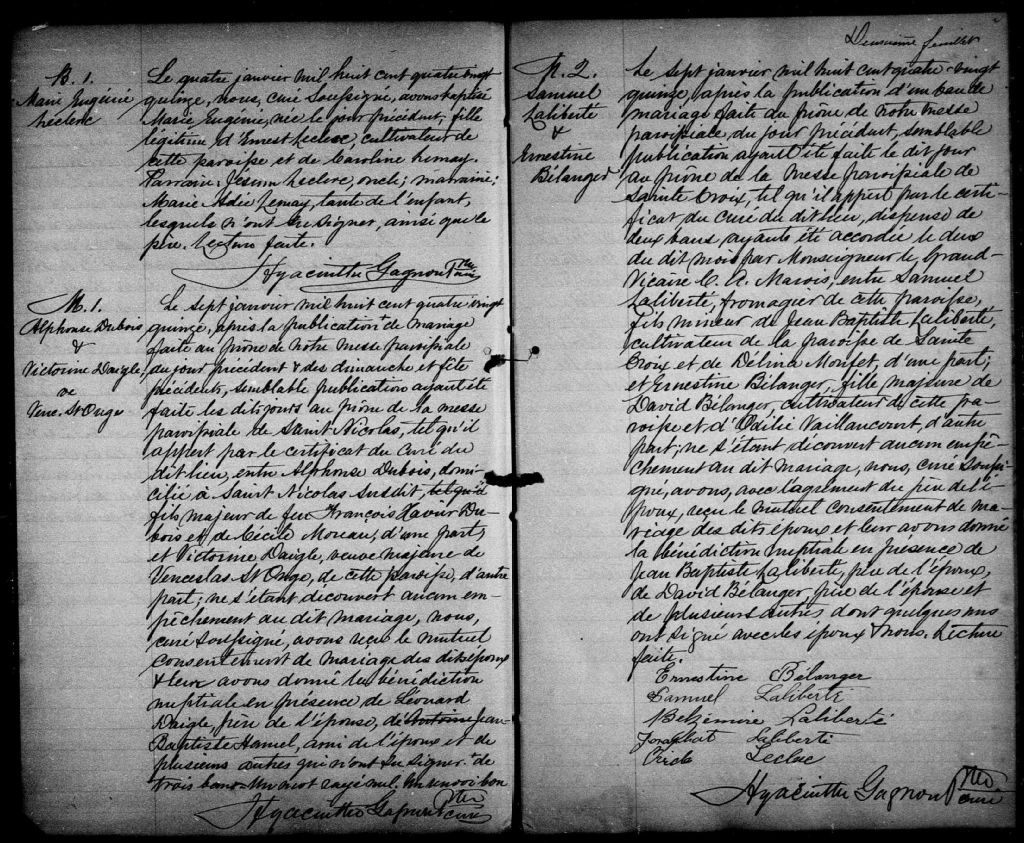 B. 1.
Marie Eugénie
Leclerc
Le quatre janvier mil huit cent quatre vingt
quinze, nous, curé soussigné, avons baptisé
Marie Eugénie, née le jour précédent, fille
légitime d'Ernest Leclerc, cultivateur de
cette paroisse et de Caroline Lemay.
Parrain: Jésum Leclerc, oncle; marraine:
Marie Adée Lemay, tante de l'enfant,
lesquels n'ont su signer, ainsi que le
père. Lecture faite.
Hyacinthe Gagnon Ptre
curé
M. 1.
Alphonse Dubois
&
Victorine Daigle,
ve
Vence. St Onge
Le sept janvier mil huit cent quatre vingt
quinze, après la publication + de mariage
faite au prône de notre messe paroissiale
du jour précédent & des dimanche et fête
précédents, semblable publication ayant été
faite les dits jours au prône de la messe
paroissiale de Saint Nicolas, tel qu'il
appert par le certificat du curé du
dit lieu, entre Alphonse Dubois, domi-
cilié à Saint Nicolas susdit, tel qu'il
fils majeur de feu François Xavier Du-
bois et de Cécile Moreau, d'une part;
et Victorine Daigle, veuve majeure de
Venceslas St Onge, de cette paroisse, d'autre
part; ne s'étant découvert aucun em-
pêchement au dit mariage, nous,
curé soussigné, avons reçu le mutuel
consentement de mariage des dits époux
& leur avons donné la bénédiction
nuptiale en présence de Léonard
Daigle, père de l'épouse, de Antoine Jean-
Baptiste Hamel, ami de l'époux et de
plusieurs autres qui n'ont su signer. + de
trois bans. Un mot rayé nul. Un renvoi bon
Hyacinthe Gagnon Ptre
curé
Deuxième feuillet
M. 2.
Samuel
Laliberté
&
Ernestine
Bélanger
Le sept janvier mil huit cent quatre-vingt
quinze, après la publication d'un ban de
mariage faite au prône de notre messe
paroissiale, du jour précédent, semblable
publication ayant été faite le dit jour
au prône de la messe paroissiale de
Sainte Croix, tel qu'il appert par le certi-
ficat du curé du dit lieu, dispense de
deux bans ayants été accordée le deux
du dit mois par Monseigneur le Grand-
Vicaire C. A. Marois, entre Samuel
Laliberté, fromagier de cette paroisse,
fils mineur de Jean Baptiste Laliberté,
cultivateur de la paroisse de Sainte
Croix et de Délina Monfet, d'une part;
et Ernestine Bélanger, fille majeure de
David Bélanger, cultivateur de cette pa-
roisse et d'Odélie Vaillancourt, d'autre
part; ne s'étant découvert aucun empê-
chement au dit mariage, nous, curé soussi-
gné, avons, avec l'agrément du père de l'é-
poux, reçu le mutuel consentement de ma-
riage des dits époux et leur avons donné
la bénédiction nuptiale en présence de
Jean Baptiste Laliberté, père de l'époux,
de David Bélanger, père de l'épouse et
de plusieurs autres, dont quelques uns
ont signé avec les époux & nous. Lecture
faite.
Ernestine Bélanger
Samuel Laliberté
Belzémire Laliberté
Josaphat Laliberté
Leclerc
Hyacinthe Gagnon Ptre
curé